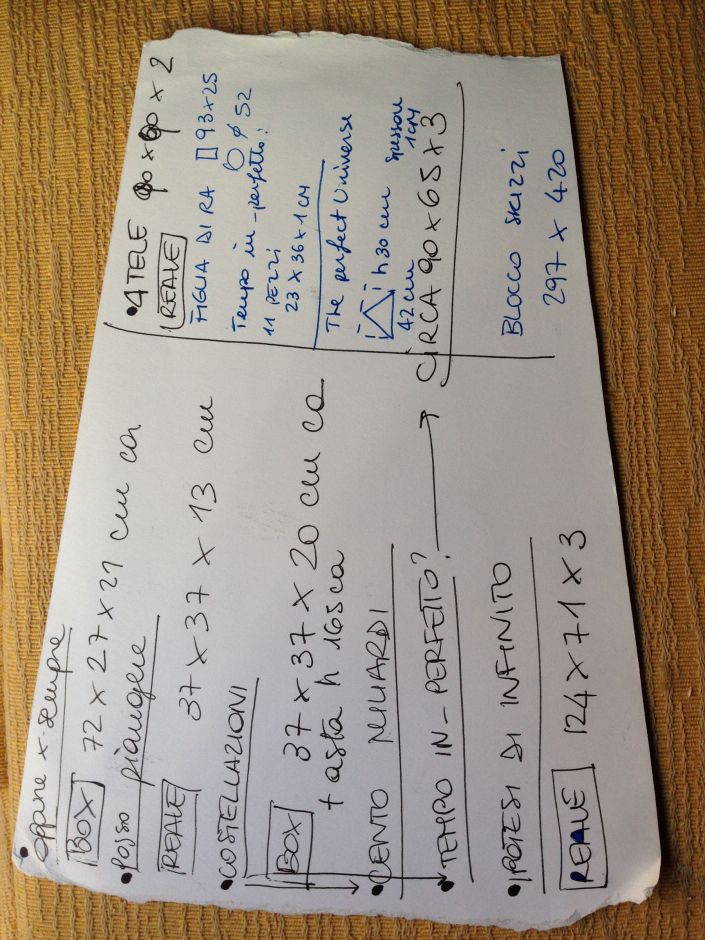 • oppure x sempre
BOX 72 x 27 x 21 cm ca
• Posso piangere
REALE 37 x 37 x 13 cm
• COSTELLAZIONI
BOX 37 x 37 x 20 cm ca
+ asta h 165 ca
• CENTO MILIARDI
• TEMPO IN-PERFETTO? → CIRCA 90 x 65 x 3
• IPOTESI DI INFINITO
REALE 124 x 71 x 3
• 4 TELE 90 x 90 x 2
REALE
FIGLIA DI RA 93 x 25
ø 52
Tempo in-perfetto?
11 PEZZI
23 x 36 x 1 cm
The perfect Universe
h 30 cm
42 cm
spessore
1 cm
BLOCCO SKIZZI
297 x 420